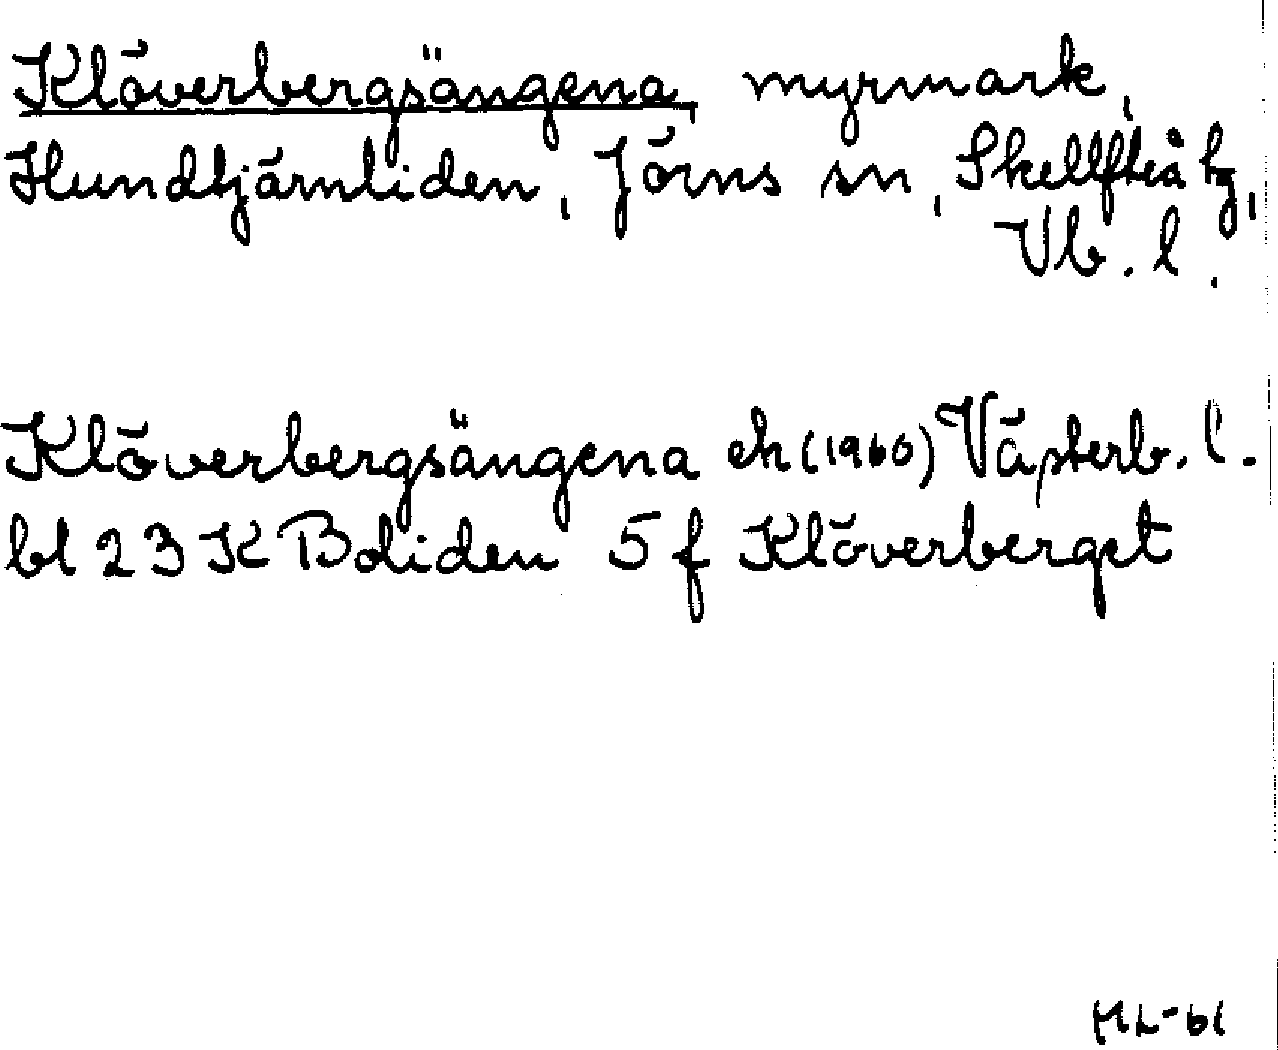 Klöverbergsängena, myrmark,
Hundtjärnliden, Jörns sn, Skellefteå tg,
Vb. l.
Klöverbergsängena ek (1960) Västerb. l.
bl 23 K Boliden 5 f Klöverberget
ML-61